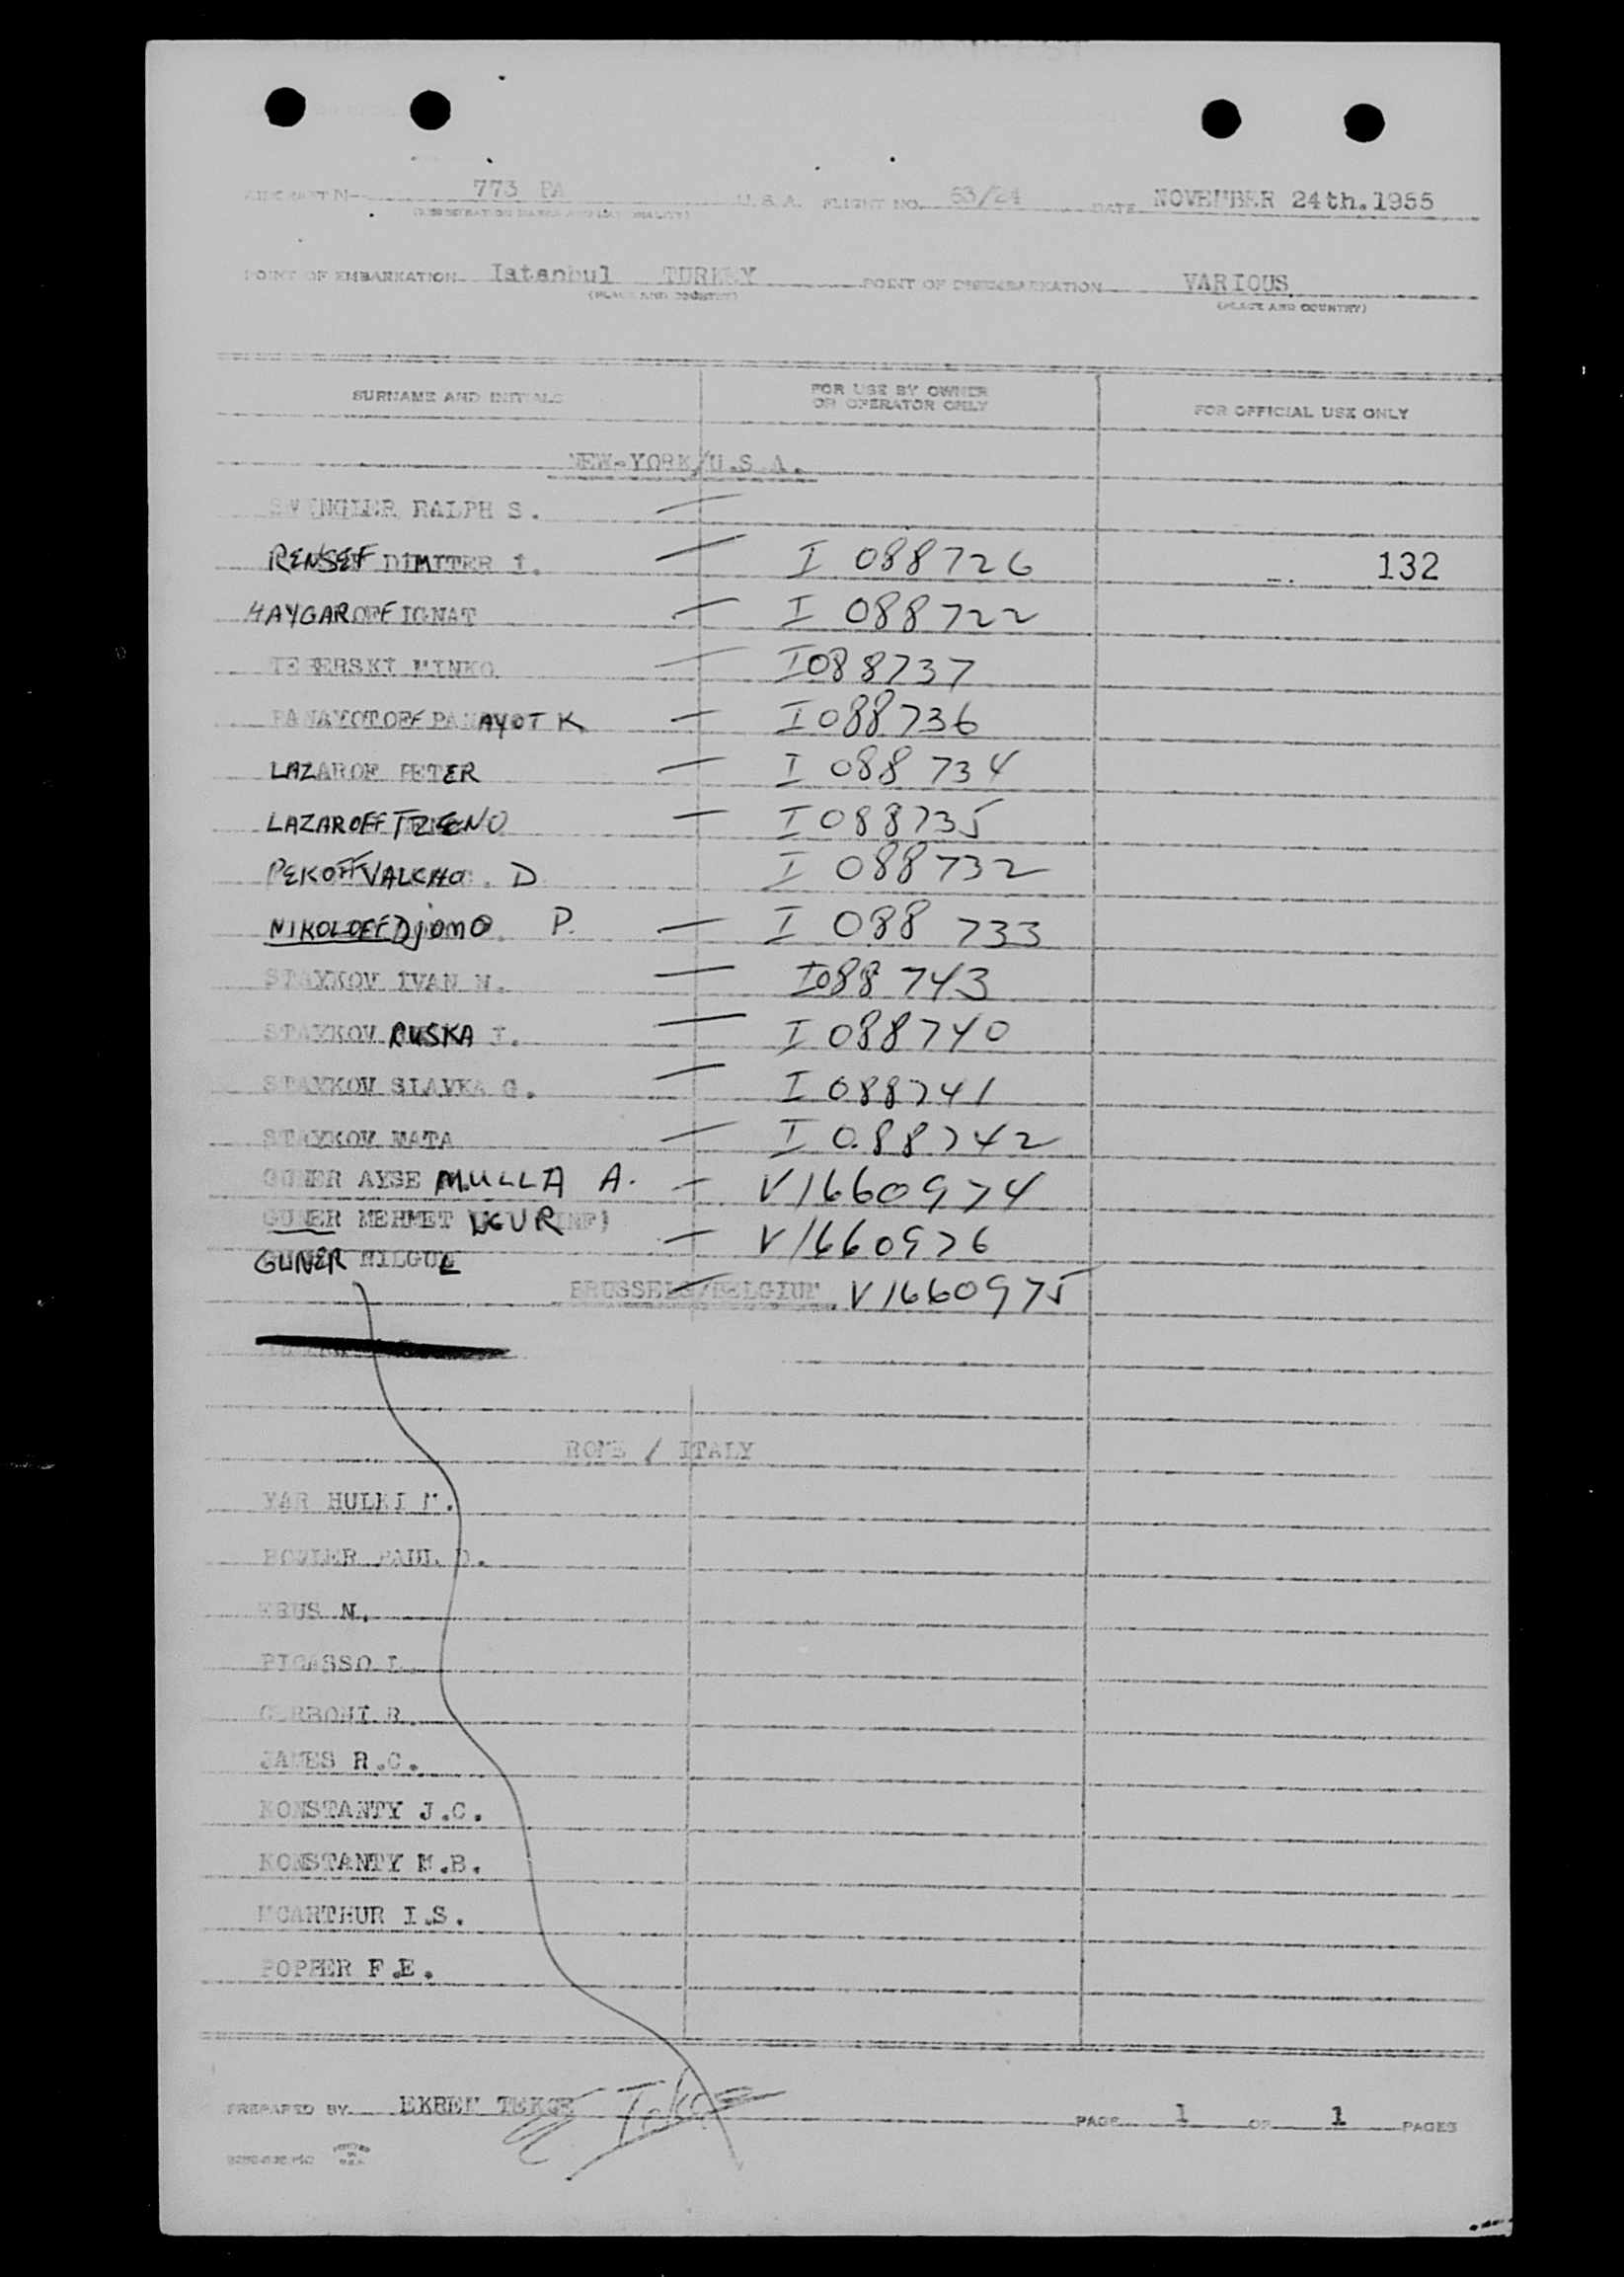 AIRCRAFT N- 773 PA U.S.A. FLIGHT NO. 63/24 DATE NOVEMBER 24th.1955
(REGISTRATION MARKS AND NATIONALITY)
POINT OF EMBARKATION Istanbul TURKEY POINT OF DISEMBARKATION VARIOUS
(PLACE AND COUNTRY) (PLACE AND COUNTRY)
SURNAME AND INITIALS FOR USE BY OWNER OR OPERATOR ONLY FOR OFFICIAL USE ONLY
NEW-YORK/U.S.A.
SWINGLER RALPH S. —
RENSEF DIMITER I. — I 088726 132
HAYGAROFF IGNAT — I 088722
TEBERSKI MINKO — I088737
PANAYOTOFF PANAYOT K — I088736
LAZAROF PETER — I 088 734
LAZAROFF TZENO — I 088735
PEKOFF VALCHO. D I 088732
NIKOLOFF Djomo P. — I 088 733
STAYKOV IVAN N. — I088 743
STAYKOV RUSKA I. — I 088740
STAYKOV SLAVKA G. — I 088741
STAYKOV MATA — I 088742
GUNER AYSE MULLA A. — V1660974
GUNER MEHMET UGUR (INF) — V1660976
GUNER NILGUL
BRUSSELS/BELGIUM — V1660975
ROME / ITALY
YAR HULKI M.
BOWLER PAUL D.
N.
PICASSO L.
CARBONI R.
JAMES R.C.
KONSTANTY J.C.
KONSTANTY M.B.
MCARTHUR I.S.
POPHER F.E.
PREPARED BY EKREM TEKCE PAGE 1 OF 1 PAGES
PRINTED IN U.S.A.